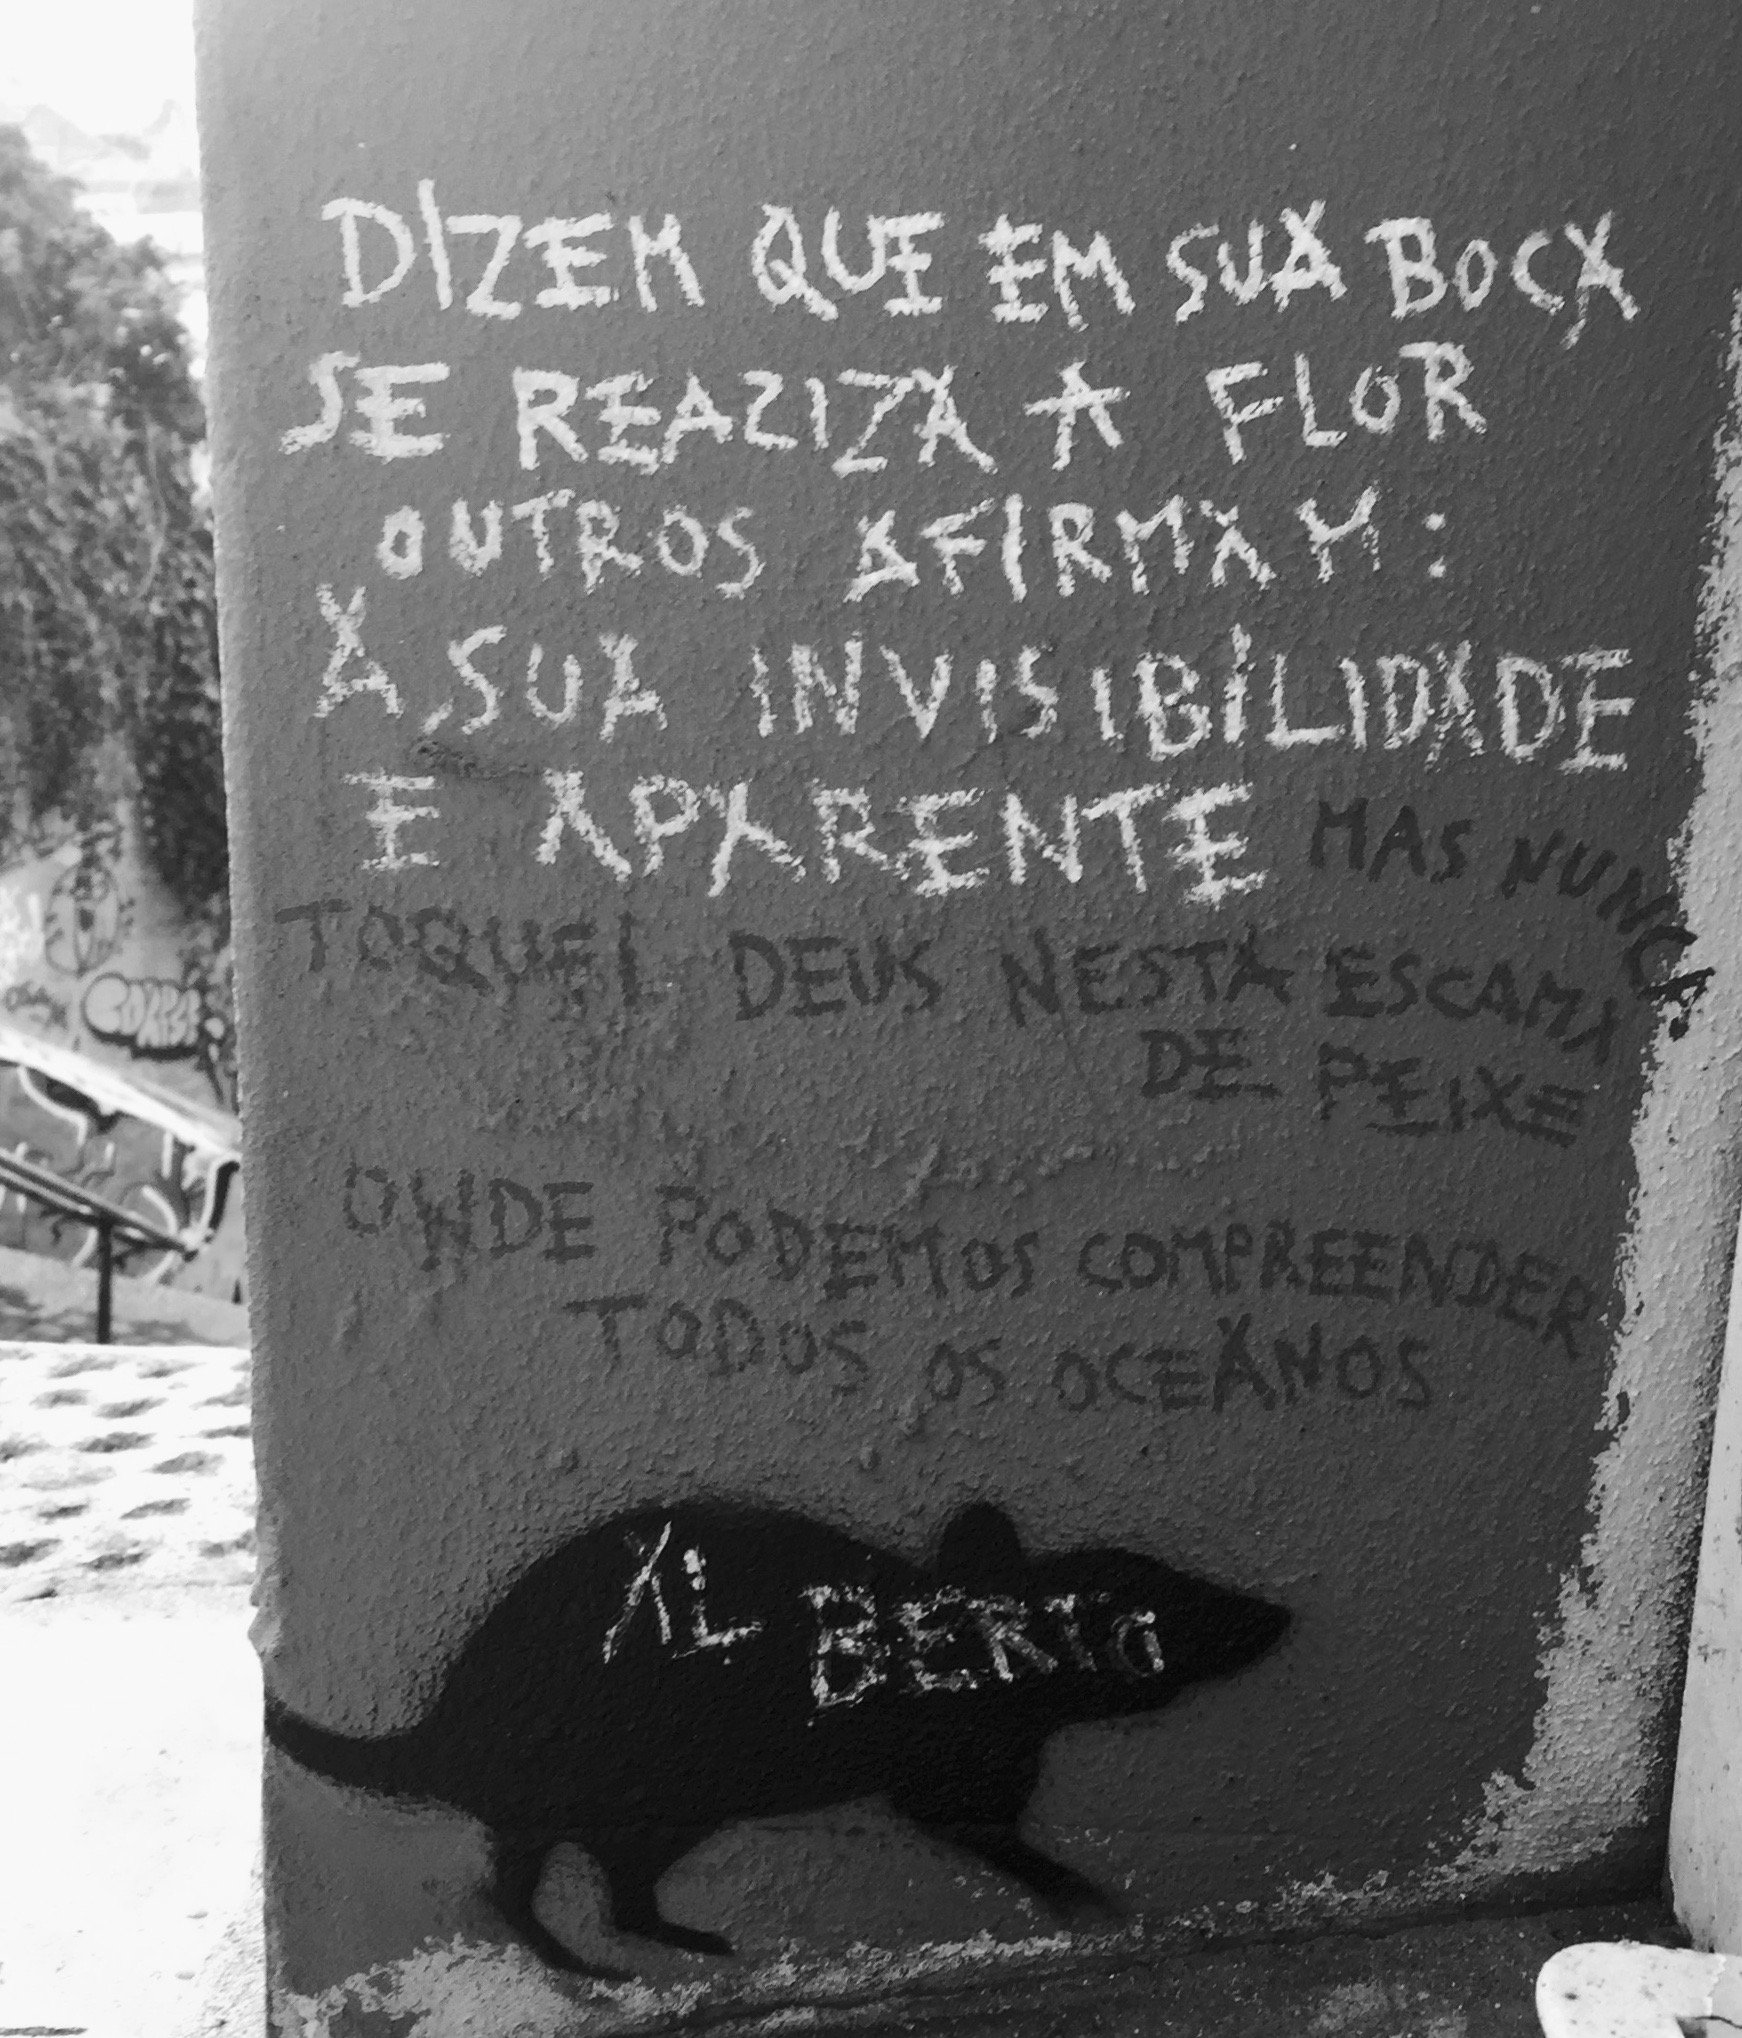 DIZEM QUE EM SUA BOCA
SE REALIZA A FLOR
OUTROS AFIRMAM:
A SUA INVISIBILIDADE
E APARENTE MAS NUNCA
TOQUEI DEUS NESTA ESCAMA
DE PEIXE
ONDE PODEMOS COMPREENDER
TODOS OS OCEANOS
AL BERTO